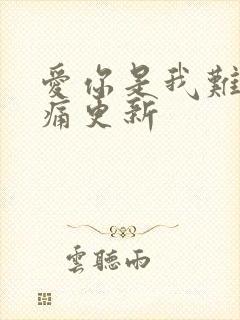 愛你是我難
痛更新
雲聽雨